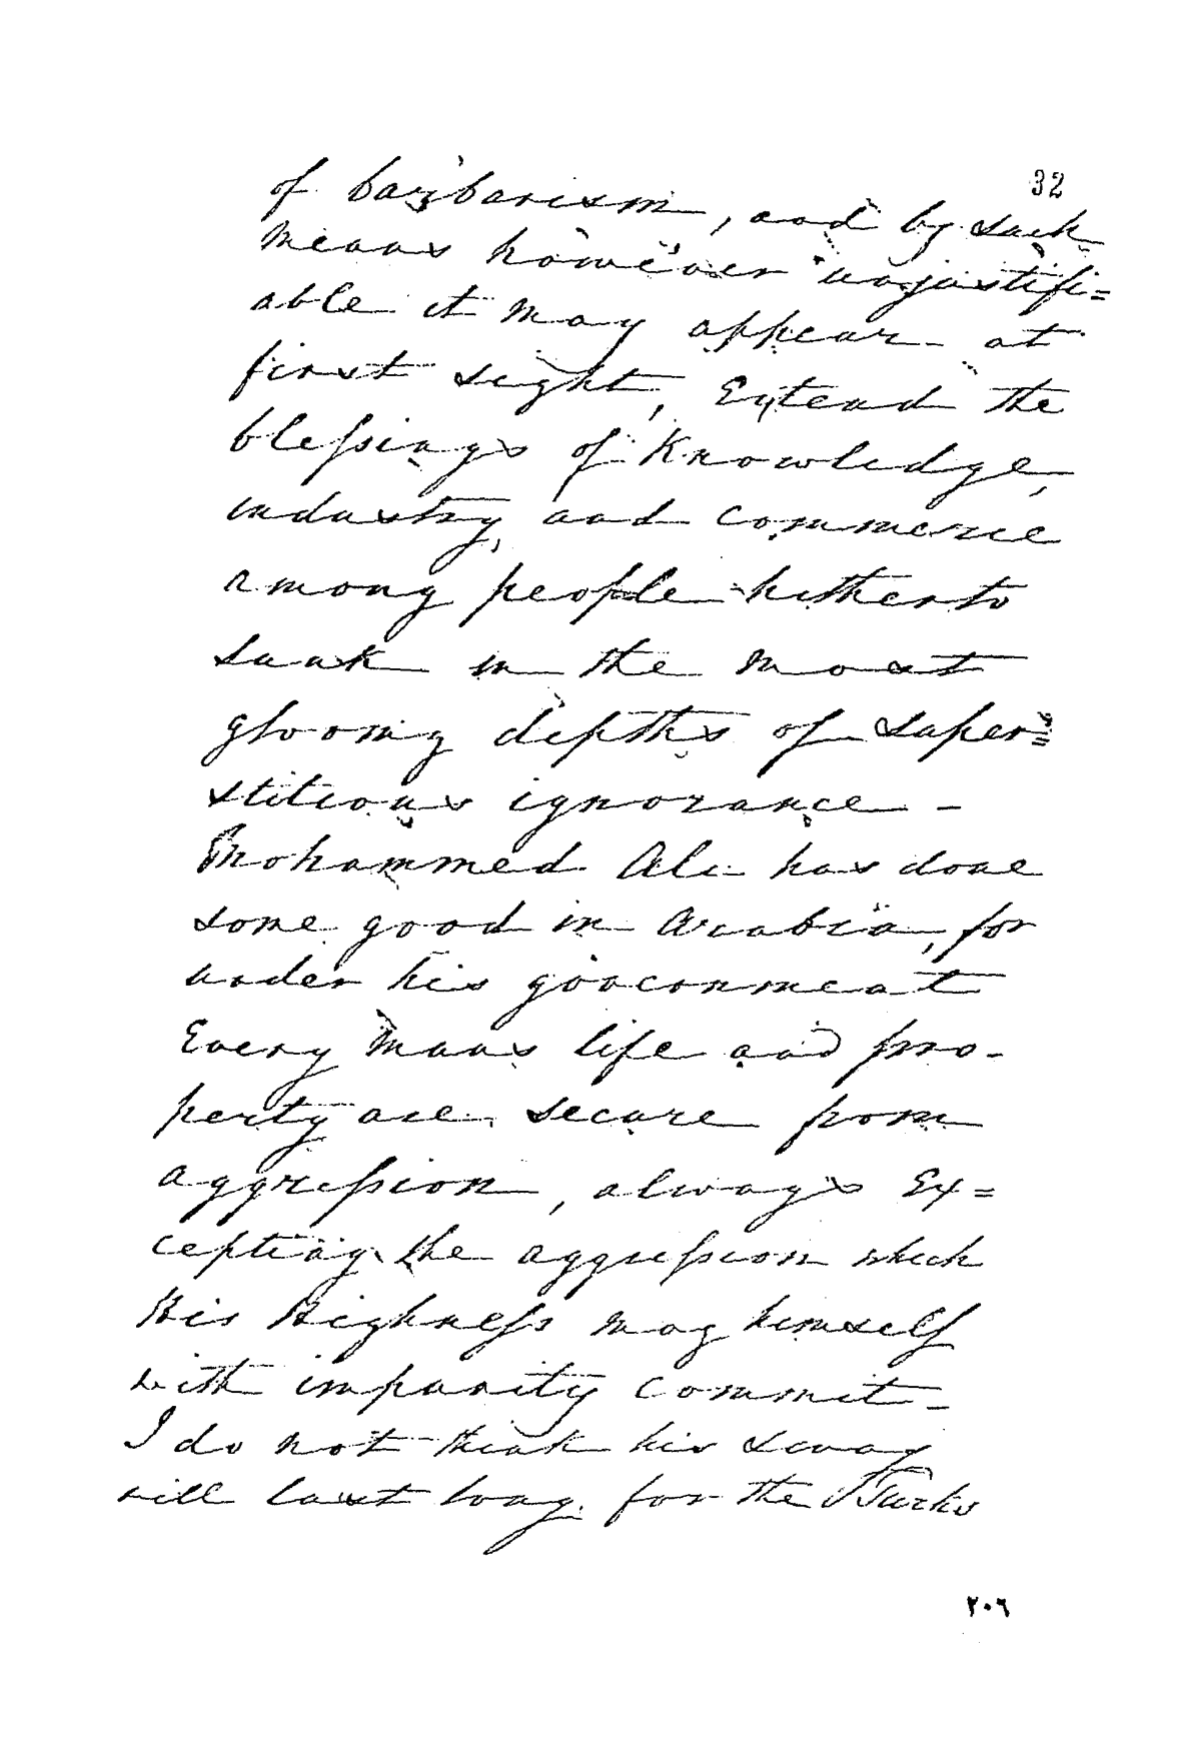 32
of barbarism, and by such
means however unjustifi=
able it may appear at
first sight, Extend the
blessings of Knowledge,
industry, and commerce
among people hitherto
sunk in the most
gloomy depths of super=
stitious ignorance -
Mohammed Ali has done
some good in Arabia, for
under his government
Every mans life and pro-
perty are secure from
aggression, always Ex=
cepting the aggression which
His Highness may himself
with impunity commit -
I do not think his sway
will last long. for the Turks
٢٠٦